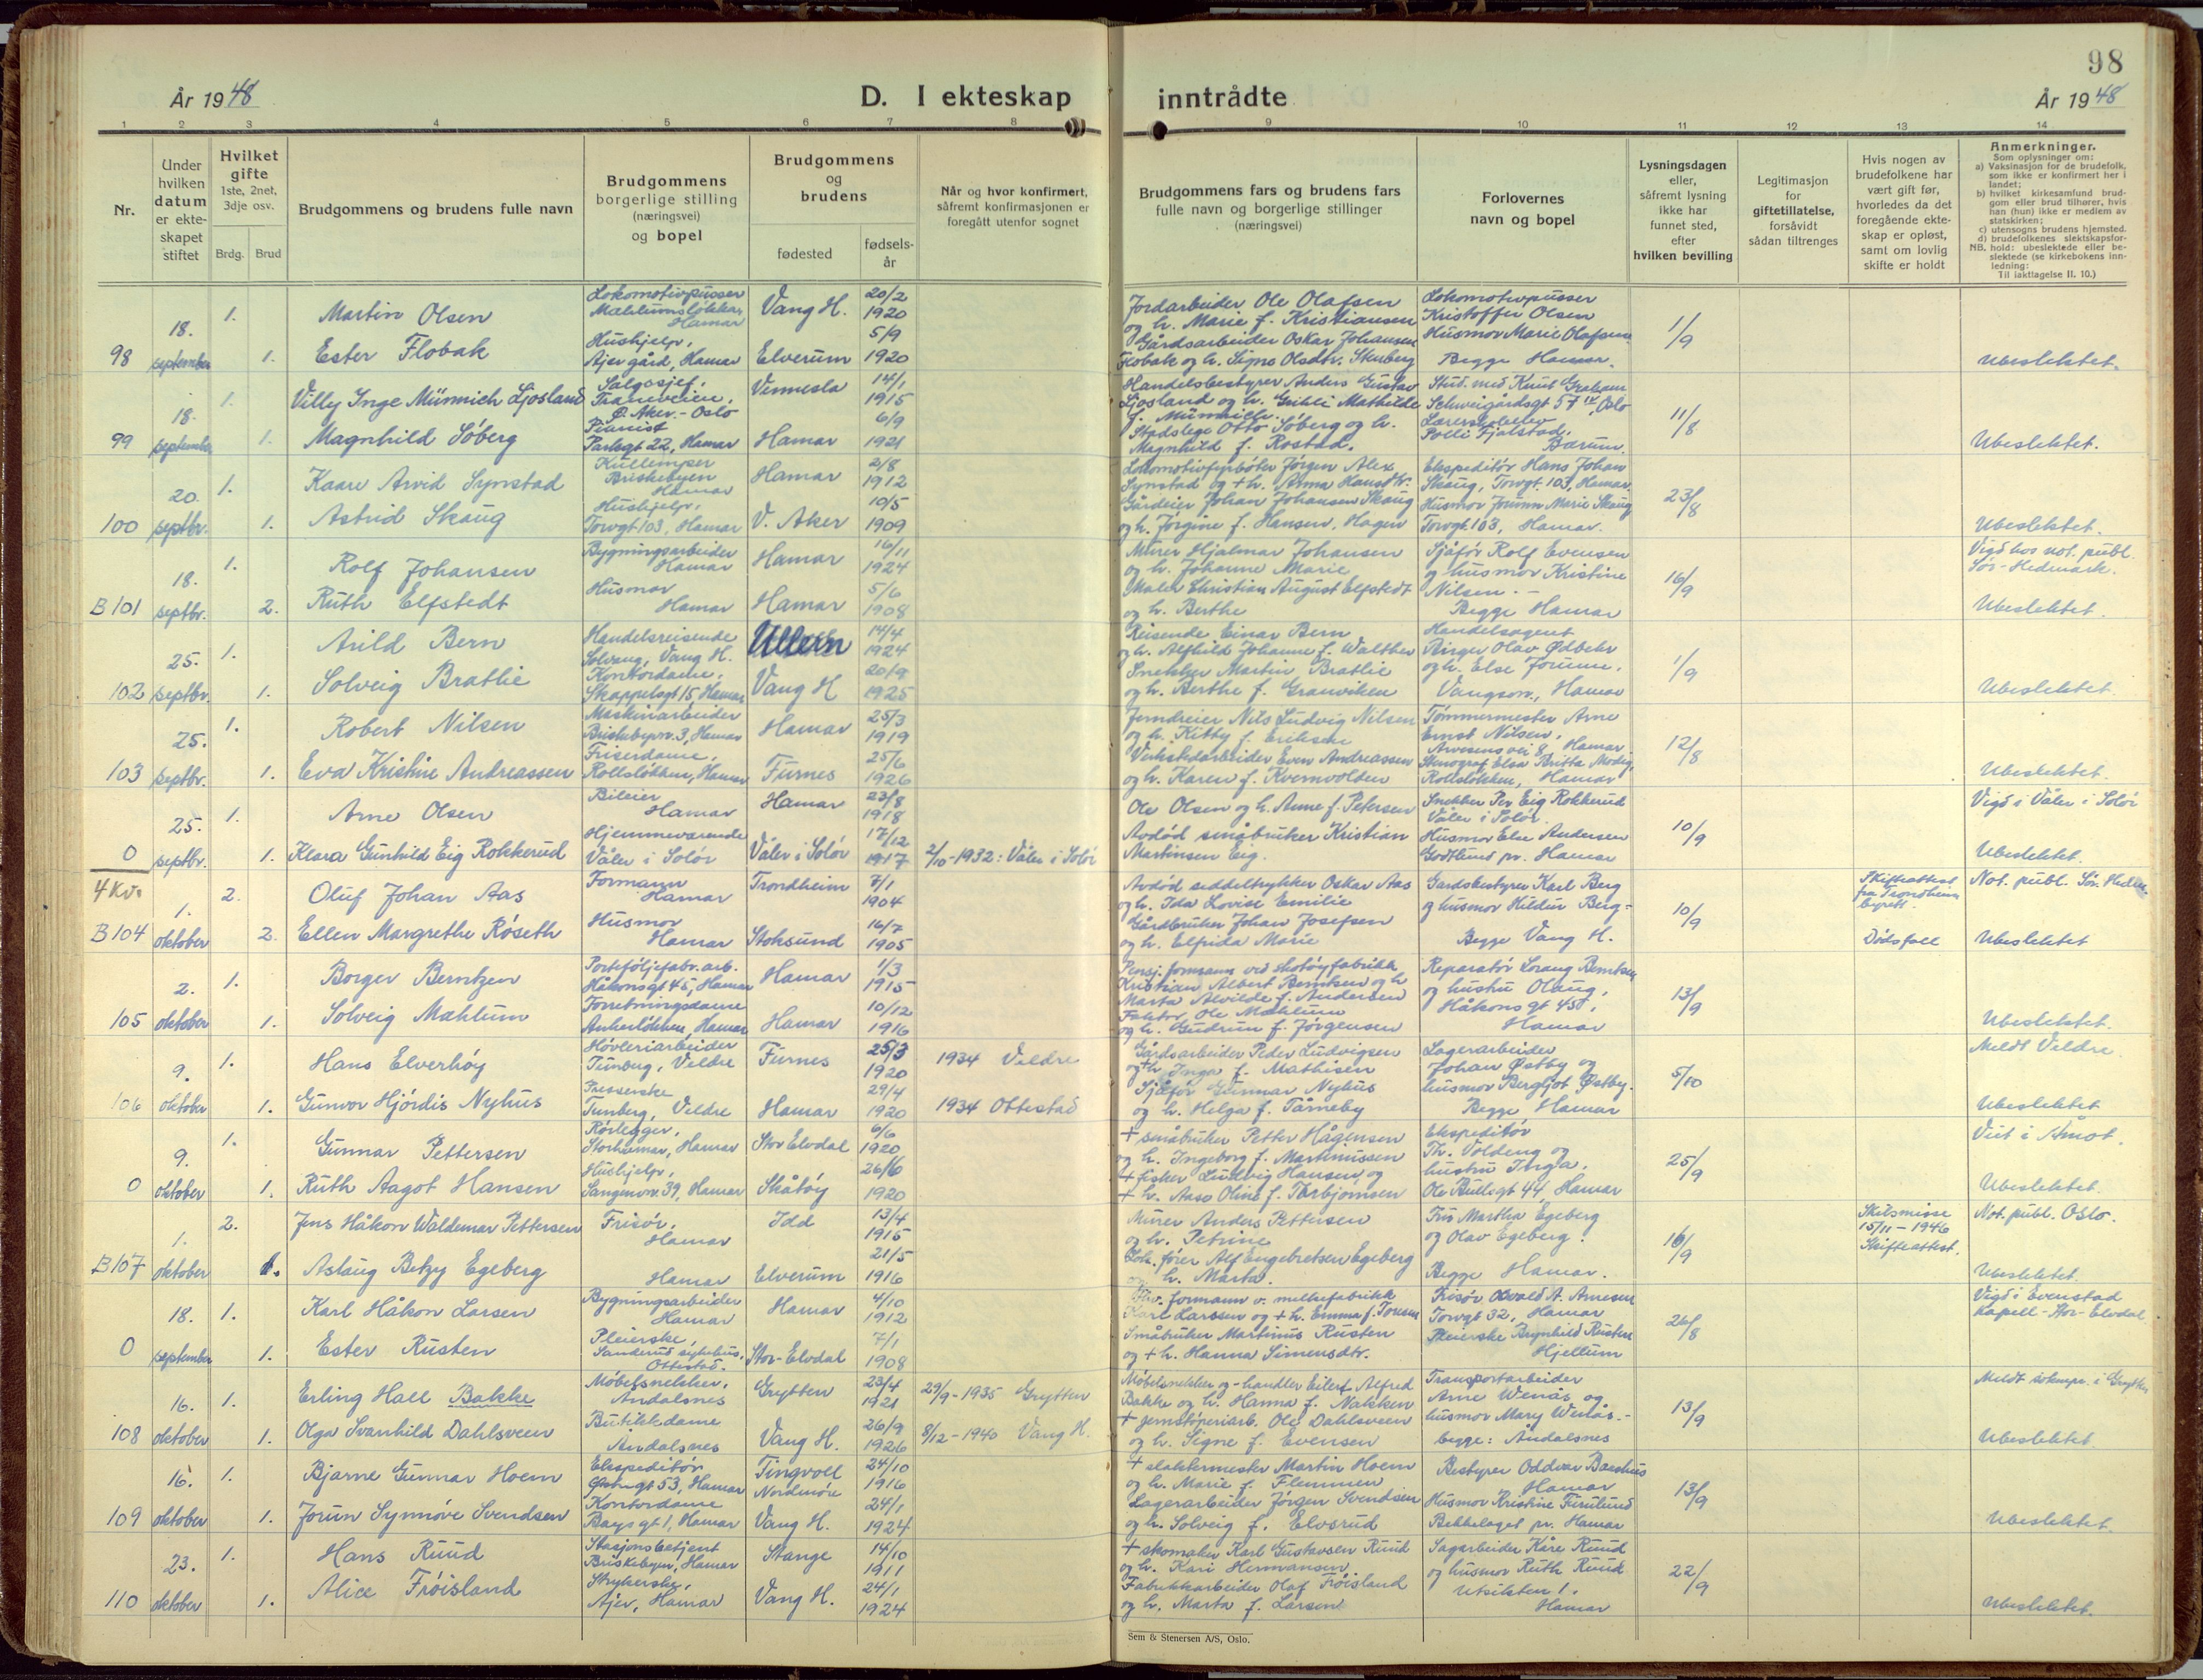 98
År 1948
D. I ekteskap
inntrådte
År 1948
1 2 3 4 5 6 7 8 9 10 11 12 13 14
Nr.
Under hvilken datum er ekteskapet stiftet
Hvilket gifte 1ste, 2net, 3dje osv.
Brdg. Brud
Brudgommens og brudens fulle navn
Brudgommens borgerlige stilling (næringsvei) og bopel
Brudgommens og brudens
fødested
fødsels-år
Når og hvor konfirmert, såfremt konfirmasjonen er foregått utenfor sognet
Brudgommens fars og brudens fars fulle navn og borgerlige stillinger (næringsvei)
Forlovernes navn og bopel
Lysningsdagen eller, såfremt lysning ikke har funnet sted, efter hvilken bevilling
Legitimasjon for giftetillatelse, forsåvidt sådan tiltrenges
Hvis nogen av brudefolkene har vært gift før, hvorledes da det foregående ekteskap er opløst, samt om lovlig skifte er holdt
Anmerkninger.
Som oplysninger om:
a) Vaksinasjon for de brudefolk, som ikke er konfirmert her i landet;
b) hvilket kirkesamfund brudgom eller brud tilhører, hvis han (hun) ikke er medlem av statskirken;
c) utensogns brudens hjemsted.
d) brudefolkenes slektskapsforhold: ubeslektede eller beslektede (se kirkebokens innledning:
NB. Til iakttagelse II. 10.)
98 18. september 1. Martin Olsen Lokomotivpusser Mæhlumsløkka, Hamar Vang H. 20/2 1920 Jordarbeider Ole Olafsen og h. Marie f. Kristiansen Lokomotivpusser Kristoffer Olsen 1/9
1. Ester Flobak Hushjelp, Ajer gård, Hamar Elverum 5/9 1920 Gårdsarbeider Oskar Johansen Flobak og h. Signe Olsdtr. Stenberg Husmor Marie Olafsen Begge Hamar. Ubeslektet.
99 18. september 1. Villy Inge Münnich Ljosland Salgssjef, Traneveien, Ø. Aker - Oslo Vennesla 14/1 1915 Handelsbestyrer Anders Gustav Ljosland og h. Mathilde f. Münnich. Stud. med Knut Schweigårdsgt 57 IV, Oslo 11/8
1. Magnhild Søberg Pianist Parkgt 22, Hamar Hamar 6/9 1921 Stadslege Otto Søberg og h. Magnhild f. Rostad. Lærerskoleelev Polli Fjalstad, Bærum. Ubeslektet.
100 20. septbr. 1. Kaare Arvid Synstad Kullemper Briskebyen Hamar Hamar 2/8 1912 Lokomotivfyrbøter Jørgen Alex Synstad og + h. Anna Hansdtr. Ekspeditør Hans Johan Skaug, Torvgt. 103, Hamar. 23/8
1. Astrid Skaug Hushjelp, Torvgt. 103, Hamar V. Aker 10/5 1909 Gårdeier Johan Johansen Skaug og h. Jørgine f. Hansen, Hagen Husmor Jørunn Marie Skaug Torvgt. 103, Hamar. Ubeslektet.
B 101 18. septbr. 1. Rolf Johansen Bygningsarbeider Hamar Hamar 16/11 1924 Murer Hjalmar Johansen og h. Johanne Marie Sjåfør Rolf Evensen og husmor Kristine Nilsen. - 16/9 Vigd hos not. publ. Sør-Hedmark.
2. Ruth Elfstedt Husmor Hamar Hamar 5/6 1908 Maler Christian August Elfstedt og h. Berthe Begge Hamar Ubeslektet.
102 25. septbr. 1. Arild Bern Handelsreisende Solvang, Vang H. Ullern 14/4 1924 Reisende Einar Bern og h. Alfhild Johanne f. Walther Handelsagent Birger Olav Ødbehr 1/9
1. Solveig Bratlie Kontordame, Skappelsgt 15, Hamar Vang H 20/9 1925 Snekker Martin Bratlie og h. Berthe f. Granviken og h. Else Jorunn. Vangsvn., Hamar Ubeslektet.
103 25. septbr. 1. Robert Nilsen Maskinarbeider Briskebyvn. 3, Hamar Hamar 25/3 1919 Jerndreier Nils Ludvig Nilsen og h. Kitty f. Eriksen Tømmermester Arne Ernst Nilsen, Arvesens vei 8, Hamar. 12/8
1. Eva Kristine Andreassen Friserdame, Rollsløkken, Hamar Furnes 25/6 1926 Verkstedarbeider Even Andreassen og h. Karen f. Kvernvolden Stenograf Elsa Britta Modig, Rollsløkken, Hamar Ubeslektet.
0 25. septbr. 1. Arne Olsen Bileier Hamar Hamar 23/8 1918 Ole Olsen og h. Anne f. Petersen Snekker Per Eig Rokkerud Våler i Solør. 10/9 Vigd i Våler i Solør
1. Klara Gunhild Eig Rokkerud Hjemmeværende Våler i Solør Våler i Solør 17/12 1917 2/10-1932: Våler i Solør Avdød småbruker Kristian Martinsen Eig. Husmor Else Andersen Godtlund pr. Hamar Ubeslektet.
4 Kv.
B 104 1. oktober 2. Oluf Johan Aas Formann Hamar Trondheim 7/1 1904 Avdød seddeltrykker Oskar Aas og h. Ida Lovise Emilie Gårdsbestyrer Karl Berg og husmor Hildur Berg - 10/9 Skifteattest fra Trondheim byrett. Not. publ. Sør-Hedm.
2. Ellen Margrethe Røseth Husmor Hamar Stoksund 16/7 1905 Gårdbruker Johan Josefsen og h. Elfrida Marie Begge Vang H. Dødsfall Ubeslektet
105 2. oktober 1. Borger Berntzen Porteføljefabr. arb. Håkonsgt 45, Hamar Hamar 1/3 1915 Pensj. formann ved skotøyfabrikk Kristian Albert Berntsen og h Marta Alvilde f. Andersen Reparatør Lorang Berntsen og hustru Olaug, 13/9
1. Solveig Mæhlum Forretningsdame Ankerløkken, Hamar Hamar 10/12 1916 Faktor Ole Mæhlum og h. Gudrun f. Jørgensen Håkonsgt 45, Hamar Ubeslektet.
106 9. oktober 1. Hans Elverhøy Høvleriarbeider Tunberg, Veldre Furnes 25/3 1920 1934 Veldre Gårdsarbeider Peder Ludvigsen og + h. Inga f. Mathisen Lagerarbeider Johan Østby og 5/10 Meldt Veldre.
1. Gunvor Hjørdis Nyhus Presserske Tunberg, Veldre Hamar 29/4 1920 1934 Ottestad Sjåfør Gunnar Nyhus og h. Helga f. Tårneby husmor Bergljot Østby. Begge Hamar Ubeslektet
0 9. oktober 1. Gunnar Pettersen Rørlegger, Storhamar, Hamar Stor Elvdal 6/6 1920 + småbruker Petter Hågensen og h. Ingeborg f. Martinussen Ekspeditør Th. Voldeng og 25/9 Viet i Åmot.
1. Ruth Aagot Hansen Hushjelp, Sangenvn. 39, Hamar Skåtøy 26/6 1920 + fisker Ludvig Hansen og + h. Aase Oline f. Torbjørnsen hustru Inga, Ole Bullsgt 44, Hamar Ubeslektet.
B 107 1. oktober 2. Jens Håkon Waldemar Pettersen Frisør, Hamar Idd 13/4 1915 Murer Anders Pettersen og h. Petrine Fru Martha Egeberg og Olav Egeberg. 16/9 Skilsmisse 15/11-1946 Skifteattest. Not. publ. Oslo.
1. Aslaug Betzy Egeberg Hamar Elverum 21/5 1916 Lok. fører Alf Engebretsen Egeberg og h. Marta. Begge Hamar. Ubeslektet.
0 18. september 1. Karl Håkon Larsen Bygningsarbeider Hamar Hamar 4/10 1912 formann v. melkefabrikk Karl Larssen og + h. Emma f. Frisør Osvald A. Arnesen Torvgt 32, Hamar 26/8 Vigd i Evenstad Kapell - Stor-Elvdal.
1. Ester Rusten Pleierske, Sanderud sykehus, Ottestad. Stor-Elvdal 7/1 1908 Småbruker Martinus Rusten og + h. Hanna Simensdtr. Pleierske Brynhild Rusten Hjellum
108 16. oktober 1. Erling Hall Bakke Møbelsnekker, Åndalsnes Grytten 23/4 1921 29/9-1935 Grytten Møbelsnekker og -handler Eilert Alfred Bakke og h. Hanna f. Nakken Transportarbeider Arne Wenås og 13/9 Meldt i Grytten
1. Olga Svanhild Dahlsveen Butikkdame Åndalsnes Vang H. 26/9 1926 8/12-1940 Vang H. + jernstøperiarb. Ole Dahlsveen og h. Signe f. Evensen husmor Mary Wenås. - begge: Åndalsnes Ubeslektet.
109 16. oktober 1. Bjarne Gunnar Hoem Ekspeditør Østregt 53, Hamar Tingvoll Nordmøre 24/10 1916 + slaktermester Martin Hoem og h. Marie f. Flemmen Bestyrer Oddvar Hamar 13/9
1. Jorun Synnøve Svendsen Kontordame Bays gt 1, Hamar Vang H. 24/1 1924 Lagerarbeider Jørgen Svendsen og h. Solveig f. Elvsrud Husmor Kristine Furulund Bekkelaget pr. Hamar Ubeslektet.
110 23. oktober 1. Hans Ruud Stasjonsbetjent Briskebyen, Hamar Stange 14/10 1911 + skomaker Karl Gustavsen Ruud og h. Kari Hermansen Sagarbeider Kåre Ruud og husmor Ruth Ruud 22/9
1. Alice Frøisland Strykerske, Ajer, Hamar Vang H. 24/1 1924 Fabrikkarbeider Olaf Frøisland og h. Marta f. Larsen Utsikten 1. Hamar Ubeslektet.
Sem & Stenersen A/S, Oslo.